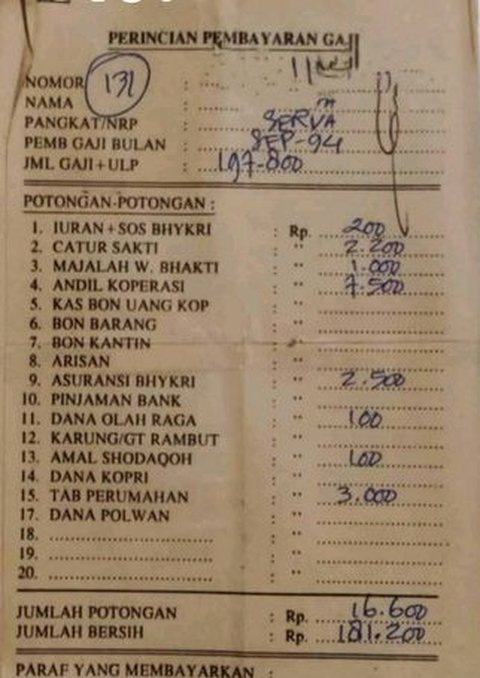 PERINCIAN PEMBAYARAN GAJI
NOMOR : 131
NAMA :
PANGKAT/NRP : SERVA
PEMB GAJI BULAN : SEP-94
JML GAJI+ULP : 197.800
POTONGAN-POTONGAN :
1. IURAN+SOS BHYKRI : Rp. 200
2. CATUR SAKTI : " 2.200
3. MAJALAH W. BHAKTI : " 1.000
4. ANDIL KOPERASI : " 7.500
5. KAS BON UANG KOP : "
6. BON BARANG : "
7. BON KANTIN : "
8. ARISAN : "
9. ASURANSI BHYKRI : " 2.500
10. PINJAMAN BANK : "
11. DANA OLAH RAGA : " 100
12. KARUNG/GT RAMBUT : "
13. AMAL SHODAQOH : " 100
14. DANA KOPRI : "
15. TAB PERUMAHAN : " 3.000
17. DANA POLWAN : "
18. : "
19. : "
20. : "
JUMLAH POTONGAN : Rp. 16.600
JUMLAH BERSIH : Rp. 181.200
PARAF YANG MEMBAYARKAN :